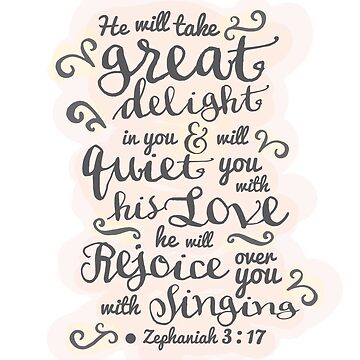 He will take
great
delight
in you & will
Quiet you
with
his Love
he will
Rejoice over
you
with Singing
• Zephaniah 3:17